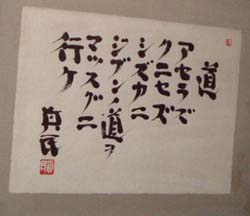 道
アセラデ
クニセズ
シズカニ
ジブンノ道ヲ
マッスグニ
行ケ
真民